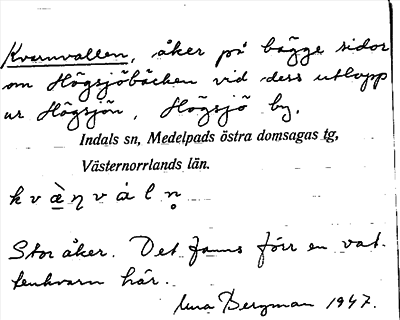 Kvarnvallen, åker på bägge sidor
om Högsjöbäcken vid dess utlopp
ur Högsjön, Högsjö by.
Indals sn, Medelpads östra domsagas tg,
Västernorrlands län.
Stor åker. Det fanns förr en vat-
tenkvarn här.
Bergman 1947.